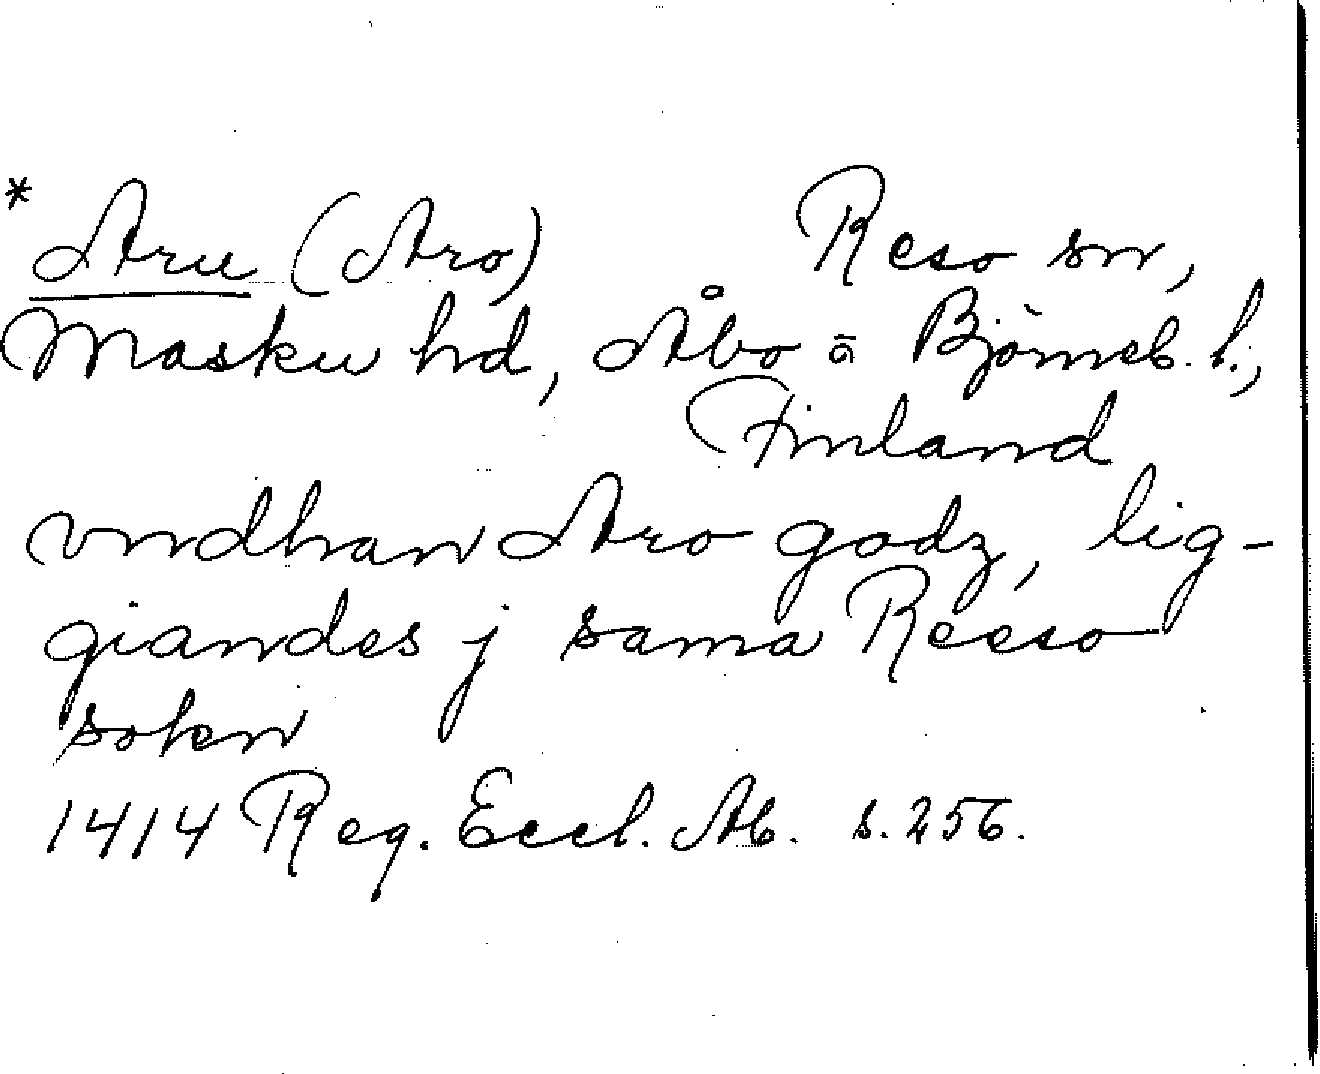 * Aru (Aro) Reso sn,
Masku hd, Åbo o Björneb. l.,
Finland
vndhan Aro godz, lig-
giandes j sama Reeso
sokn
1414 Reg. Eccl. Ab. s. 256.